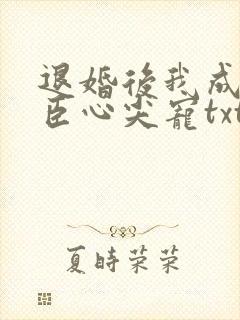 退婚後我成
臣心尖寵txt
夏時荣荣